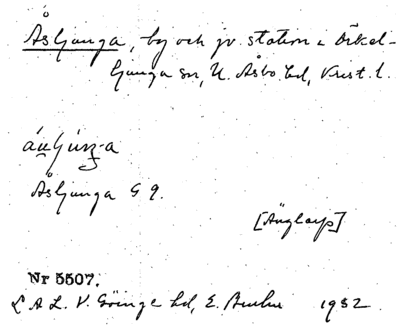 Åsljunga, by och jv. station i Örkel-
ljunga sn, N. Åsbo hd, Krist. l.
Åsljunga G 9.
[Änglarp]
Nr 5507.
L A L. V. Göinge hd, E. 1932